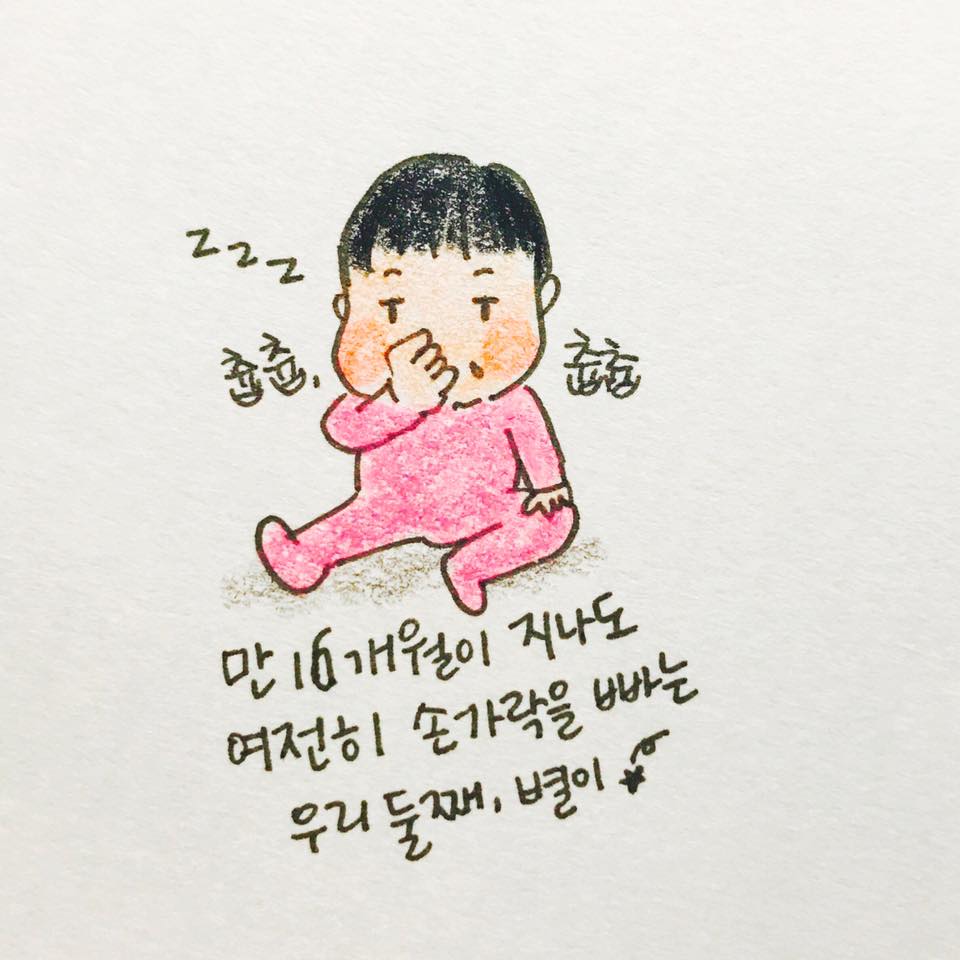 zzz
춉춉,
춉춉
만 16개월이 지나도
여전히 손가락을 빠는
우리 둘째, 별이